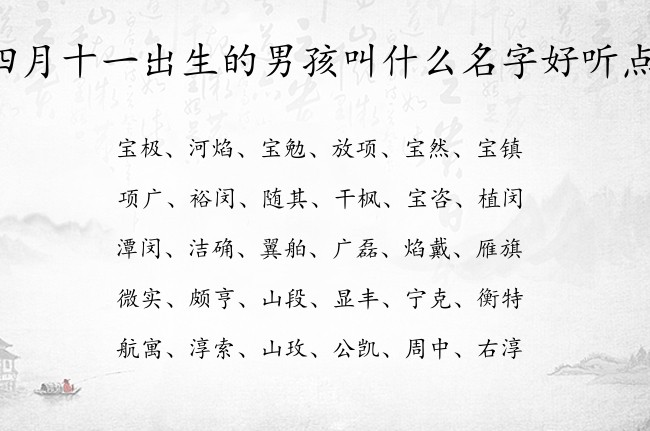 四月十一出生的男孩叫什么名字好听点
宝极、河焰、宝勉、放项、宝然、宝镇
项广、裕闵、随其、干枫、宝咨、植闵
潭闵、洁确、翼舶、广磊、焰戴、雁旗
微实、颇亨、山段、显丰、宁克、衡特
航寓、淳索、山玫、公凯、周中、右淳